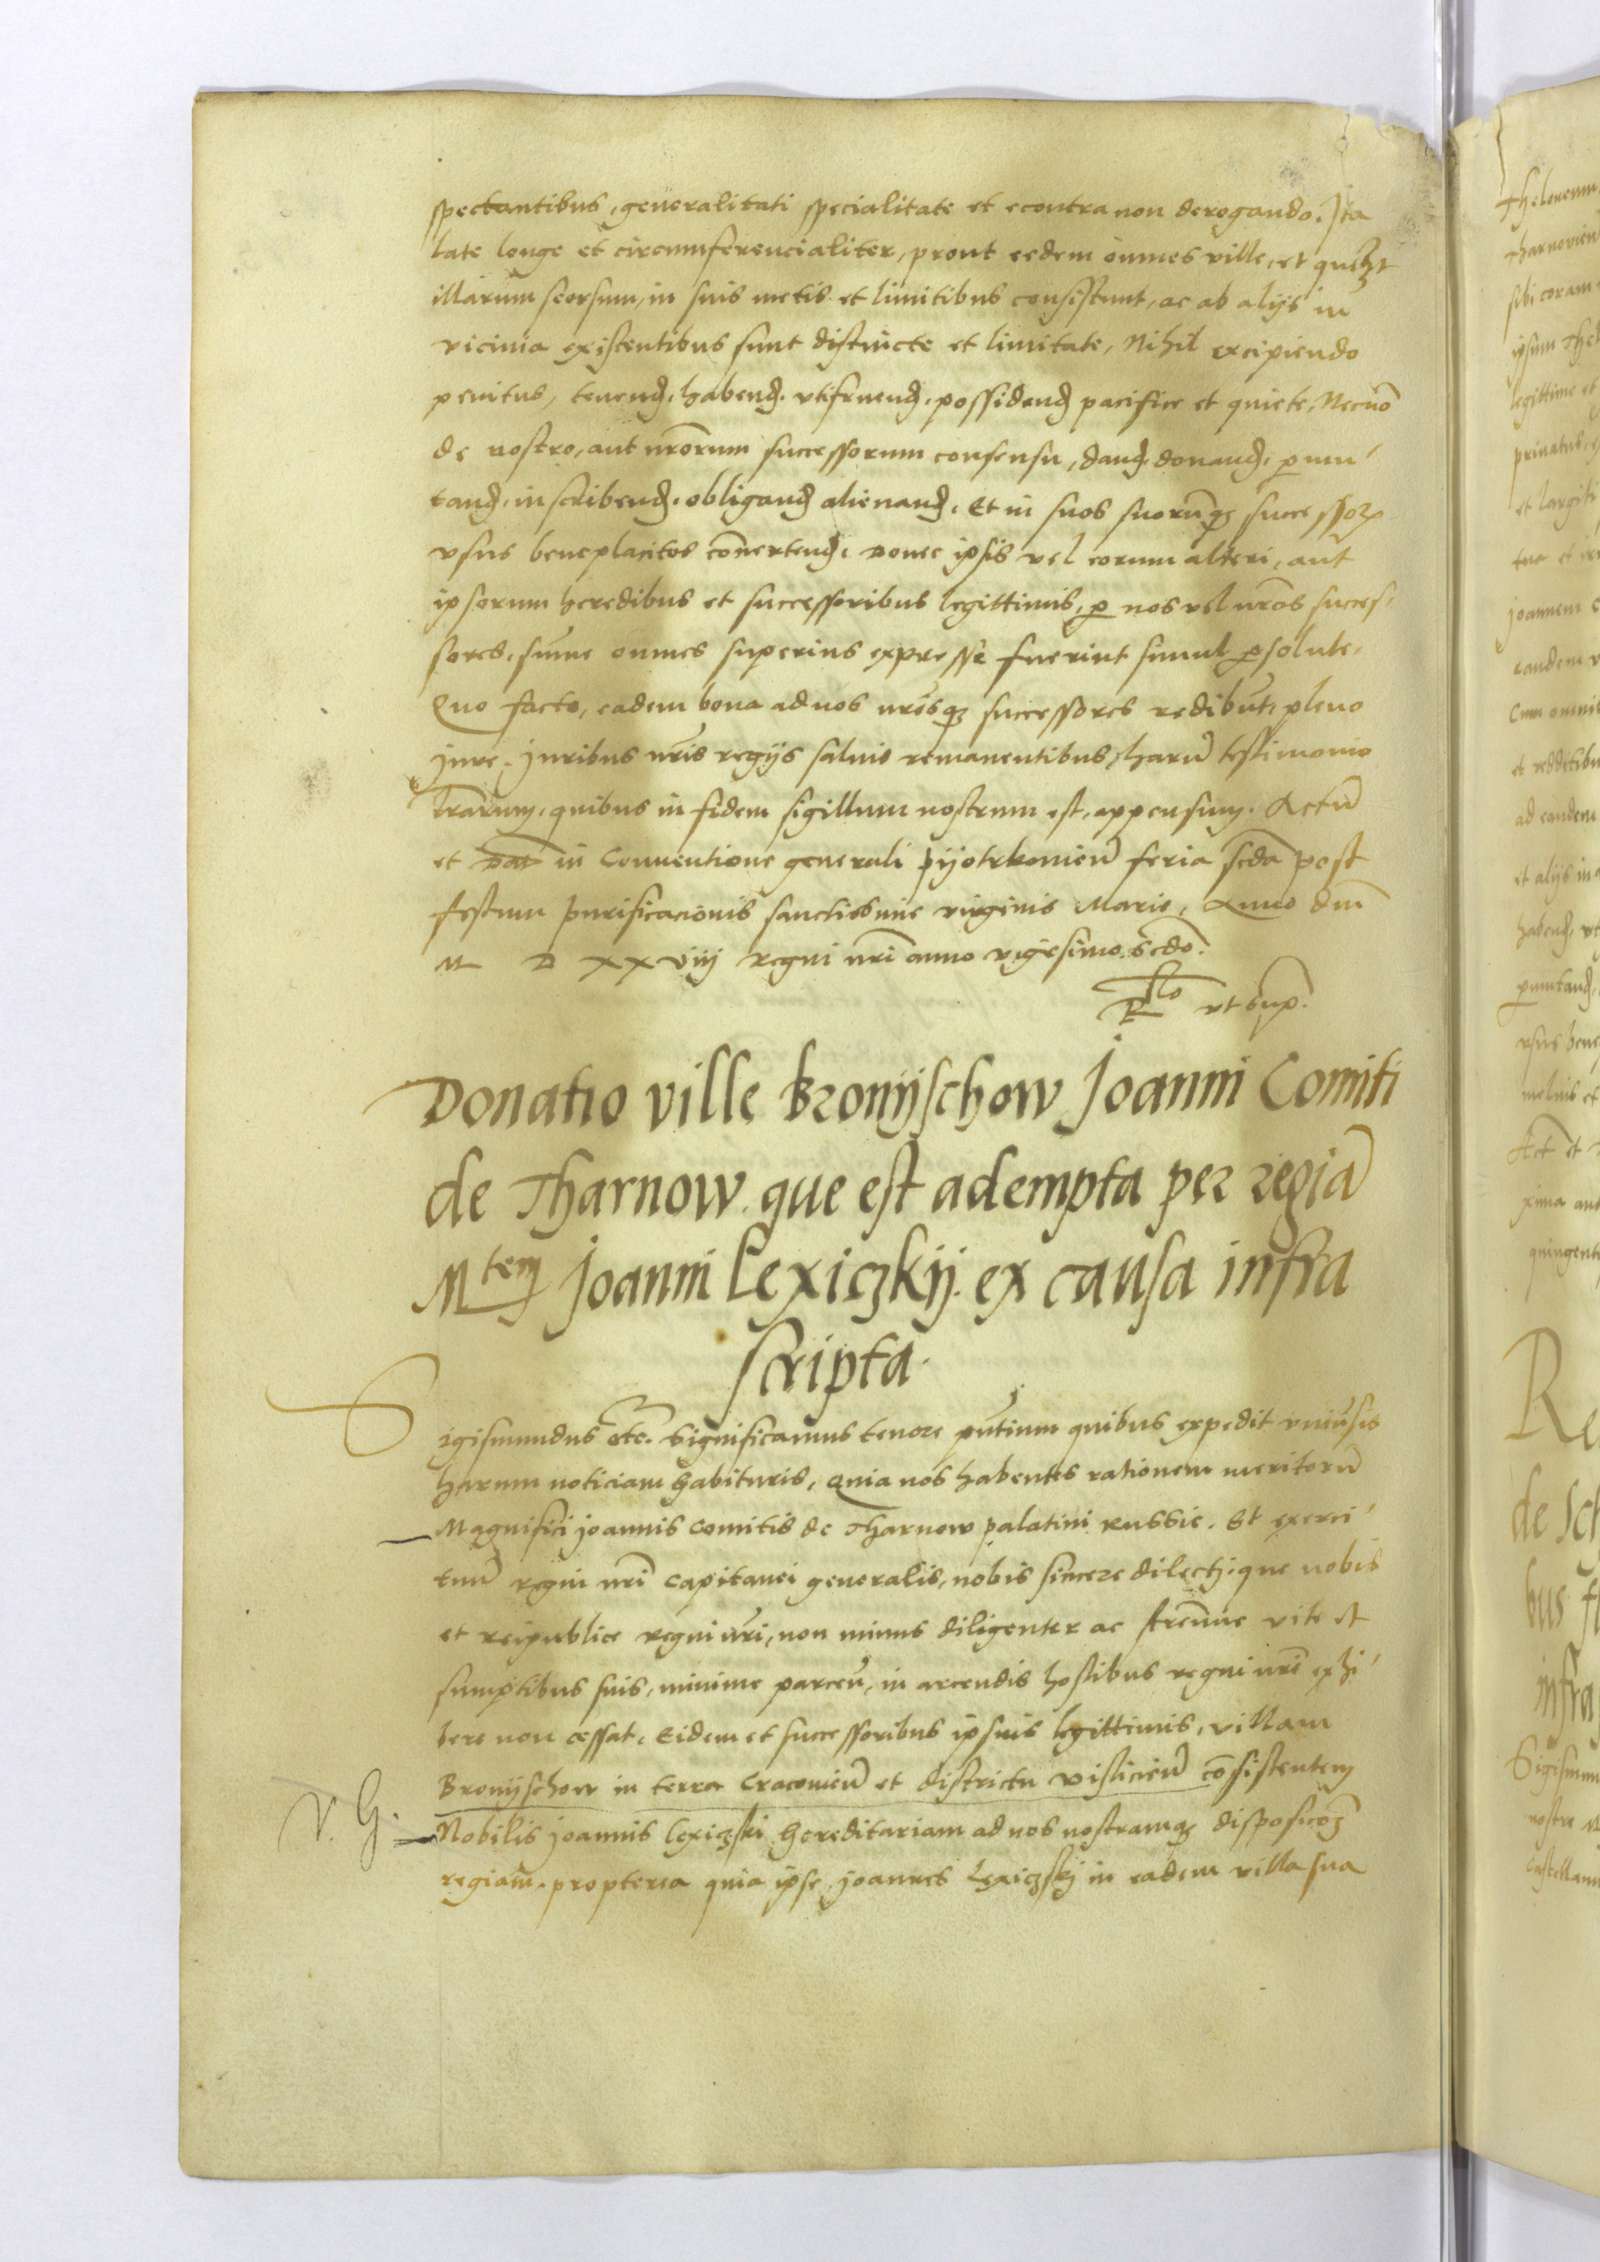 spectantibus, generalitati specialitate et econtra non derogando. Ita
late longe et circumferencialiter, prout eedem omnes ville, et quelꝫt
illarum seorsum, in suis metis et limitibus consistunt, ac ab alijs in
vicinia existentibus sunt distincte et limitate, Nihil excipiendo
penitus, tenenđ, habenđ, vtifruenđ, possidenđ pacifice et quiete, Necnō
de nostro, aut nr̄orum successorum consensu, danđ, donanđ, ꝑmu
tanđ, inscribenđ, obliganđ alienanđ, Et in suos suorūqꝫ successoꝝ
vsus beneplacitos cōuertenđ, Donec ipsis vel eorum alteri, aut
ipsorum heredibus et successoribus legittimis, ꝑ nos vel nr̄os succes
sores, sūme omnes superius expresse fuerint simul ꝑsolute,
Quo facto, eadem bona ad nos nr̄osqꝫ successores redibūt, pleno
jure. Juribus nr̄is regijs saluis remanentibus, harū testimonio
lr̄arum, quibus in fidem sigillum nostrum est, appensum. Actū
et Dat̄ in Conuentione generali pijotrkouien̄ feria scd̄a post
festum purificacionis sanctissime virginis Marie, Anno dn̄i
M D XX viij regni nr̄i anno vigesimo. Scd̄o.
Rlo vt sup̄.
Donatio ville Bronijschow Joanni Comiti
de Tharnow que est adempta per regiā
Mtem Joanni Lexiczkij ex causa infra
scripta.
Sigismundus etc̄. Significamus tenore pn̄tium quibus expedit vniūsis
harum noticiam habituris, Quia nos habentes rationem meritorū
Magnifici Joannis Comitis de Tharnow palatini Russie, Et exerci
tuū regni nr̄i Capitanei generalis, nobis sincere dilecti, que nobis
et reipublice regni nr̄i, non minus diligenter ac strēnue vite et
sumptibus suis, minime parcen̄, in arcendis hostibus regni nr̄i exhi
bere non cessat, Eidem et successoribus ipsius legittimis, villam
Bronijschow in terra Cracouien̄ et districtu visticien̄ cōsistentem
V. G.
Nobilis Joannis Lexiczski hereditariam ad nos nostramqꝫ disposicōeꝫ
regiam, propterea quia ipse Joannes Lexiczskj in eadem villa sua